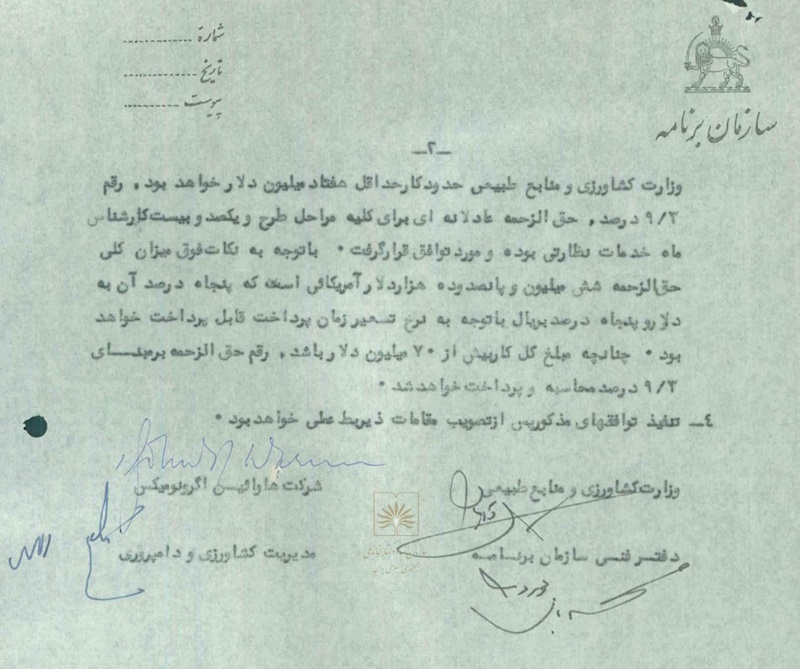 شماره ................
تاریخ ................
پیوست ................
سازمان برنامه
ــ۲ــ
وزارت کشاورزی و منابع طبیعی حدودکارحداقل هفتاد میلیون دلارخواهد بود. رقم
۹/۳ درصد. حق الزحمه عادلانه ای برای کلیه مراحل طرح و یکصدو بیست کارشناس
ماه خدمات نظارتی بوده و مورد توافق قرارگرفت. باتوجه به نکات فوق میزان کلی
حق الزحمه شش میلیون و پانصدوده هزاردلارآمریکائی است که پنجاه درصد آن به
دلارو پنجاه درصد بریال باتوجه به نرخ تسعیر زمان پرداخت قابل پرداخت خواهد
بود. چنانچه مبلغ کل کاربیش از ۷۰ میلیون دلارباشد. رقم حق الزحمه برمبنــای
۹/۳ درصد محاسبه و پرداخت خواهد شد.
٤ــ تنفیذ توافقهای مذکورپس ازتصویب مقامات ذیربط عملی خواهد بود.
شرکت هاوائیـن اگرونومیکس
وزارت کشاورزی و منابع طبیعی
مدیریت کشاورزی و دامپروری
دفتـر فنـی سازمان برنامـه